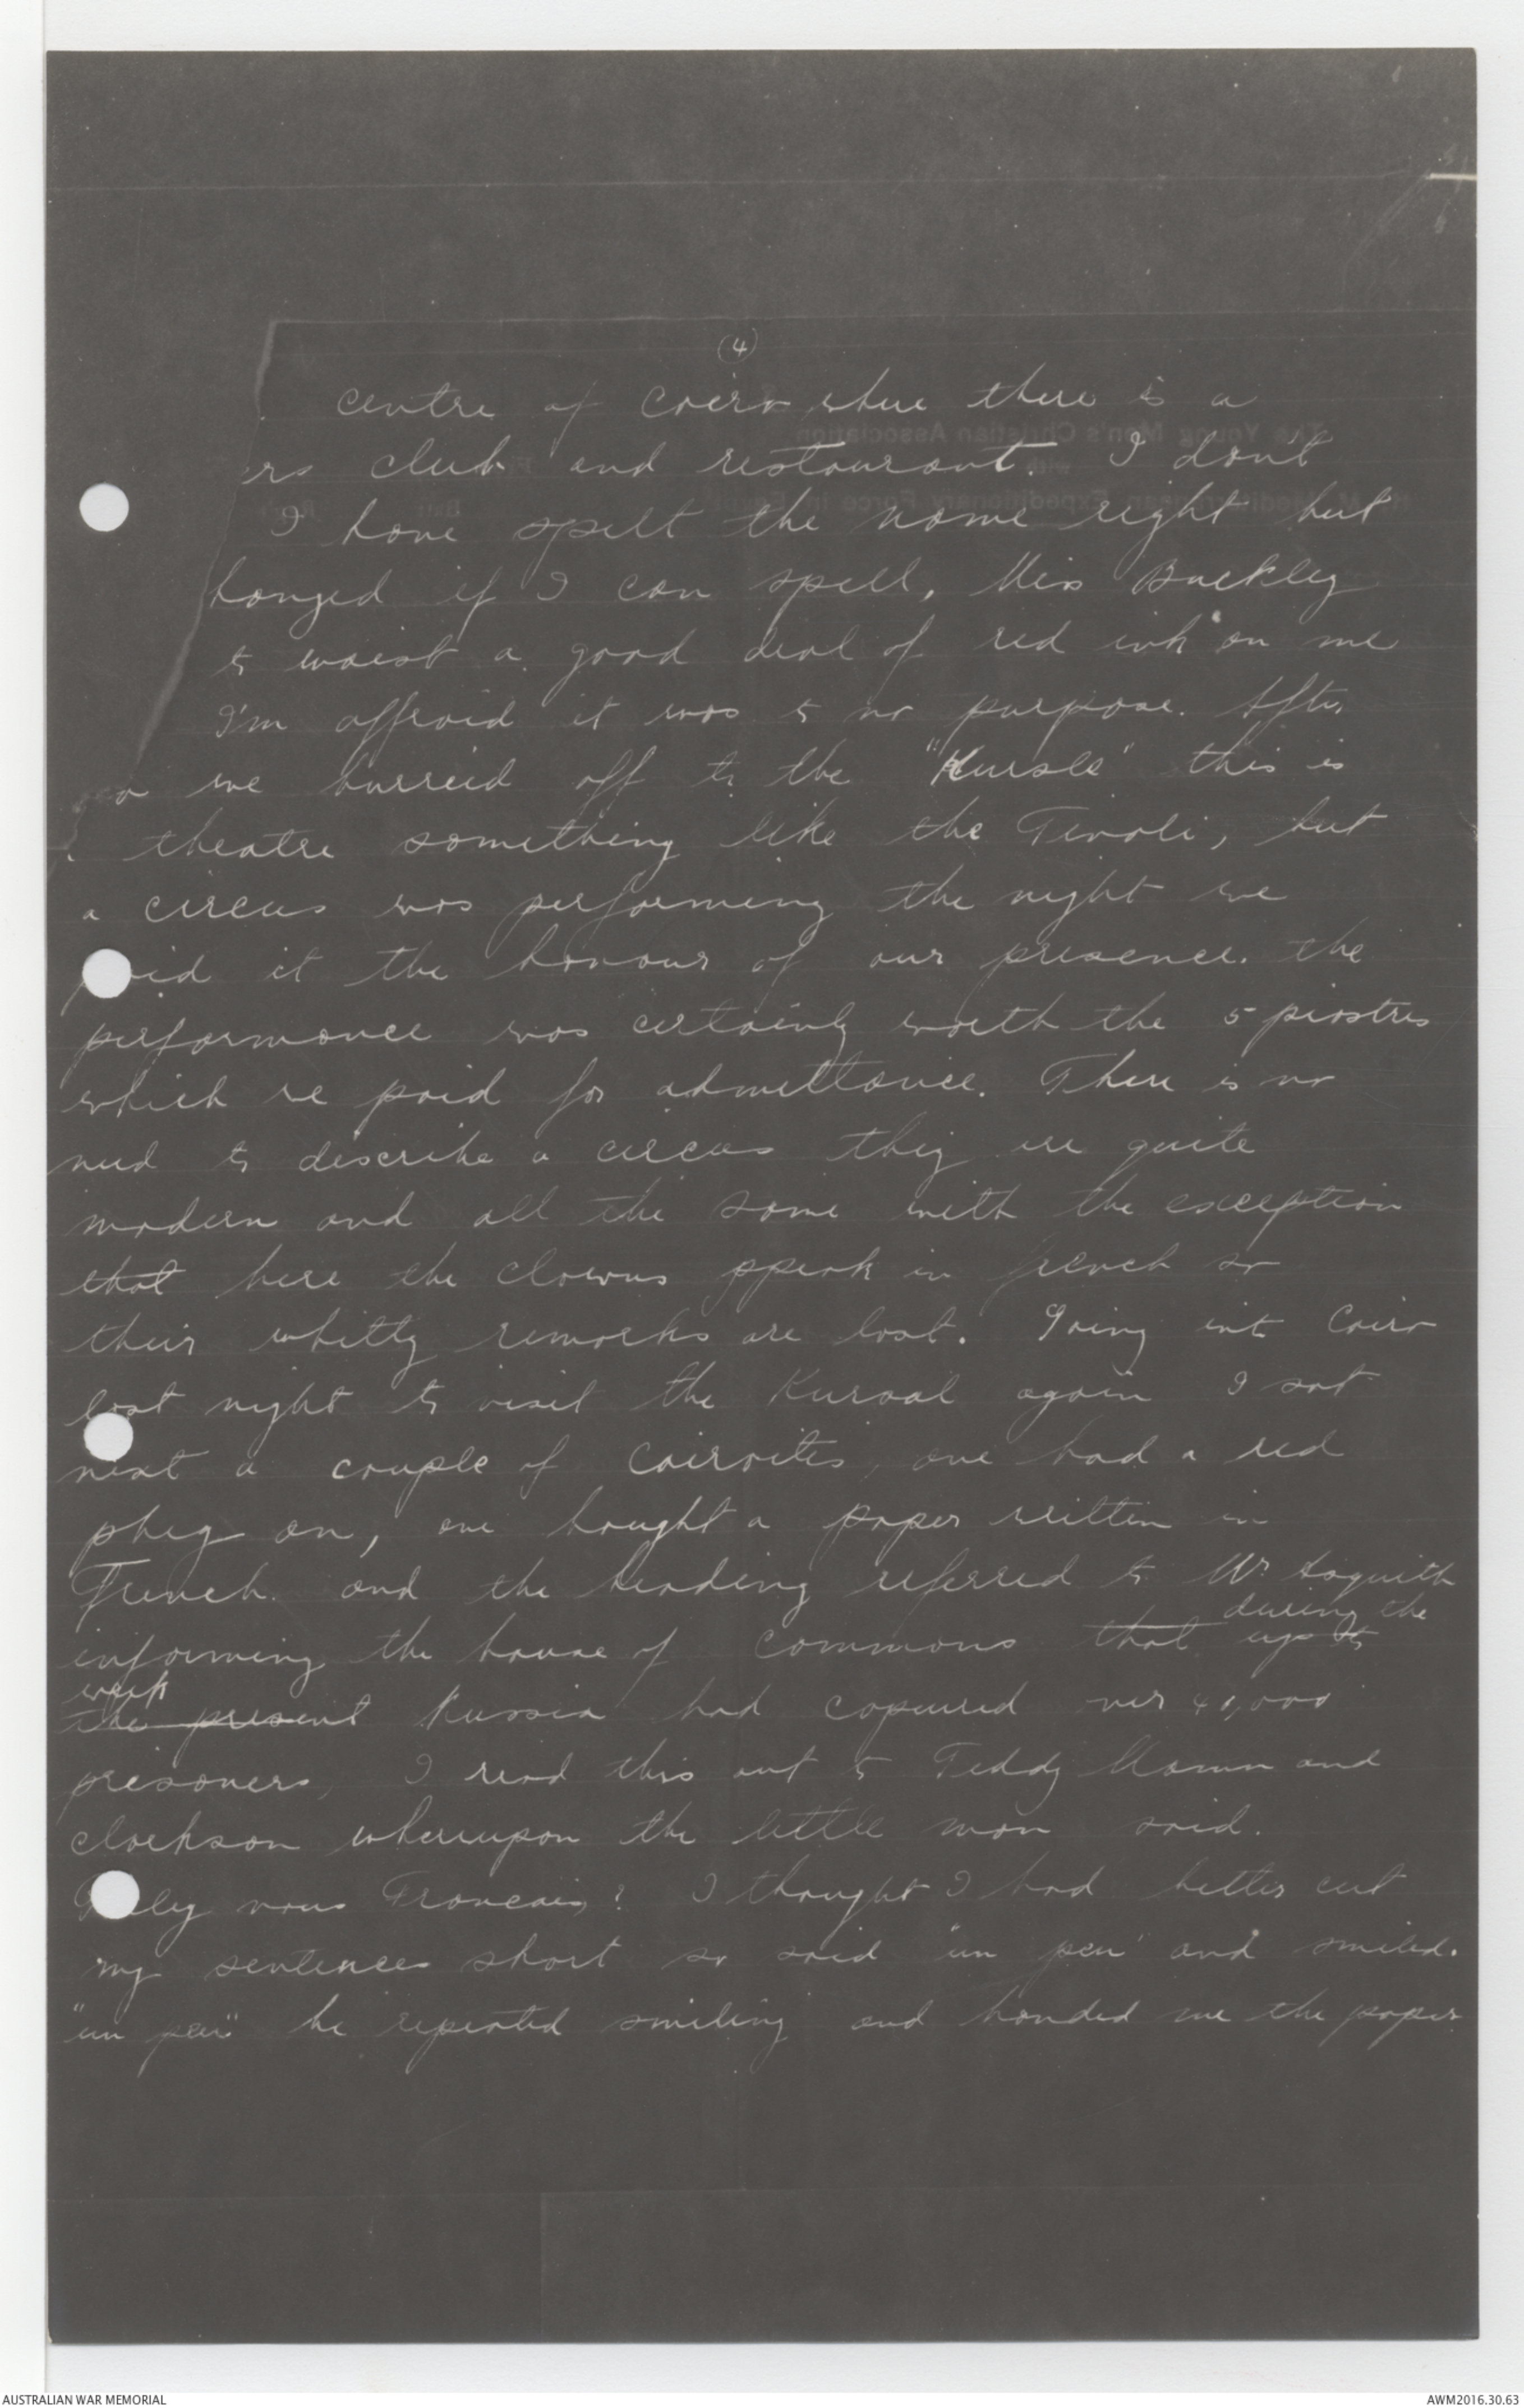 (4)
centre of Cairo where there is a
ers club and restaurant. I dont
I have spelt the name right but
hanged if I can spell, Miss Buckley
to waist a good deal of red ink on me
I'm affraid it was to no purpose. After
we hurreid off to the "Kursle" this is
theatre something like the Tivoli, but
a circus was performing the night we
paid it the honour of our presence. the
performance was certainly worth the 5 piastres
which we paid for admittance. There is no
need to describe a circus they are quite
modern and all the same with the exception
that here the clowns speak in french so
their whitty remarks are lost. Going into Cairo
last night to visit the Kursal again I sat
next a couple of Cairoites, one had a red
pheg on, one bought a paper written in
French. and the heading referred to Mr Asquith
during the
informing the house of commons that up to
week
the present Russia had capured over 40,000
prisoners, I read this out to Teddy Mann and
Clarkson whereupon the little man said.
Parley vous Francais? I thought I had better cut
my sentences short so said "un peu" and smiled.
"un peu" he repeated smiling and handed me the paper
The Young Men's Christian Association
with
Mediterranean Expeditionary Force in Egypt
AUSTRALIAN WAR MEMORIAL
AWM2016.30.63